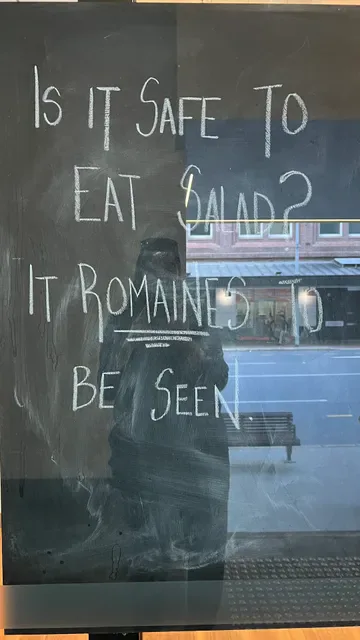 Is IT SAFE TO
EAT SALAD?
IT ROMAINES TO
BE SEEN.